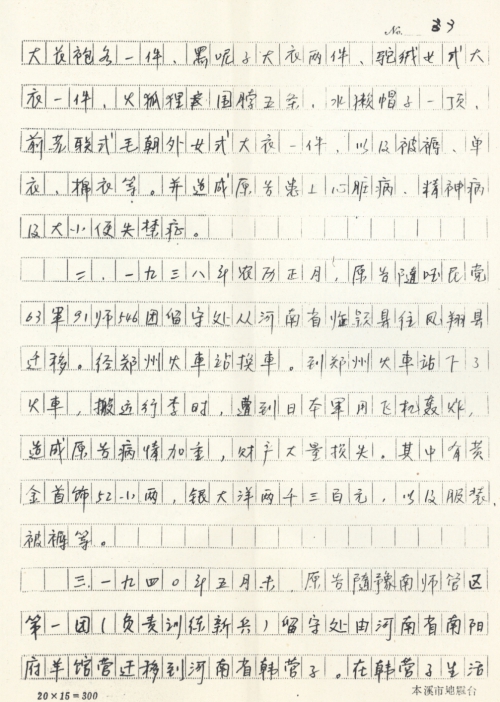 No. 89
大衣袍各一件、黑呢子大衣两件、驼绒女式大
衣一件，火狐狸围脖五条，水獭帽子一顶，
前苏联式毛朝外女式大衣一件，以及被褥、单
衣，棉衣等。并造成原告患上心脏病、精神病
及大小便失禁症。
二、一九三八年农历正月，原告随国民党
63军91师546团留守处从河南省临颍县往凤翔县
迁移。经郑州火車站换車。到郑州火車站下了
火車，搬运行李时，遭到日本軍用飞机轰炸，
造成原告病情加重，财产大量损失。其中有黄
金首饰52小两，银大洋两千三百元，以及服装、
被褥等。
三、一九四〇年五月末，原告随豫南师管区
第一团（负责训练新兵）留守处由河南省南阳
府羊馆营迁移到河南省韩营子。在韩营子生活
20×15=300
本溪市地震台